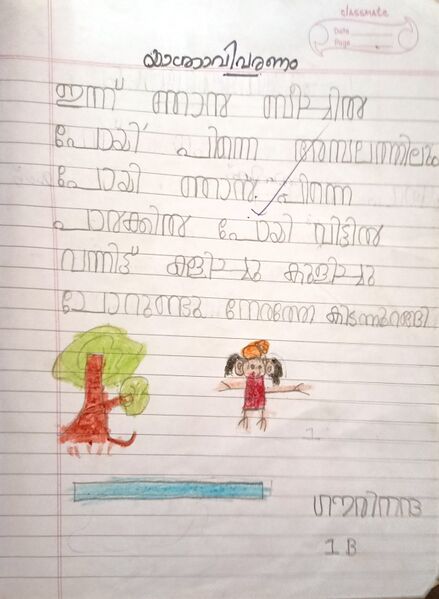 classmate
Date
Page
യാത്രാവിവരണം
ഇന്ന് ഞാനു ബീച്ചിതു
പോയി പിന്നെ അമ്പലത്തിലും
പോയി ഞാൻ പിന്നെ
പാറക്കിതു പോയി വിട്ടിതു
വന്നിട്ട് കളിച്ചു കുളിച്ചു
ചോറുണ്ടു നേരത്തെ കിടന്നുറങ്ങി
1
ഗൗരിനന്ദ
1 B